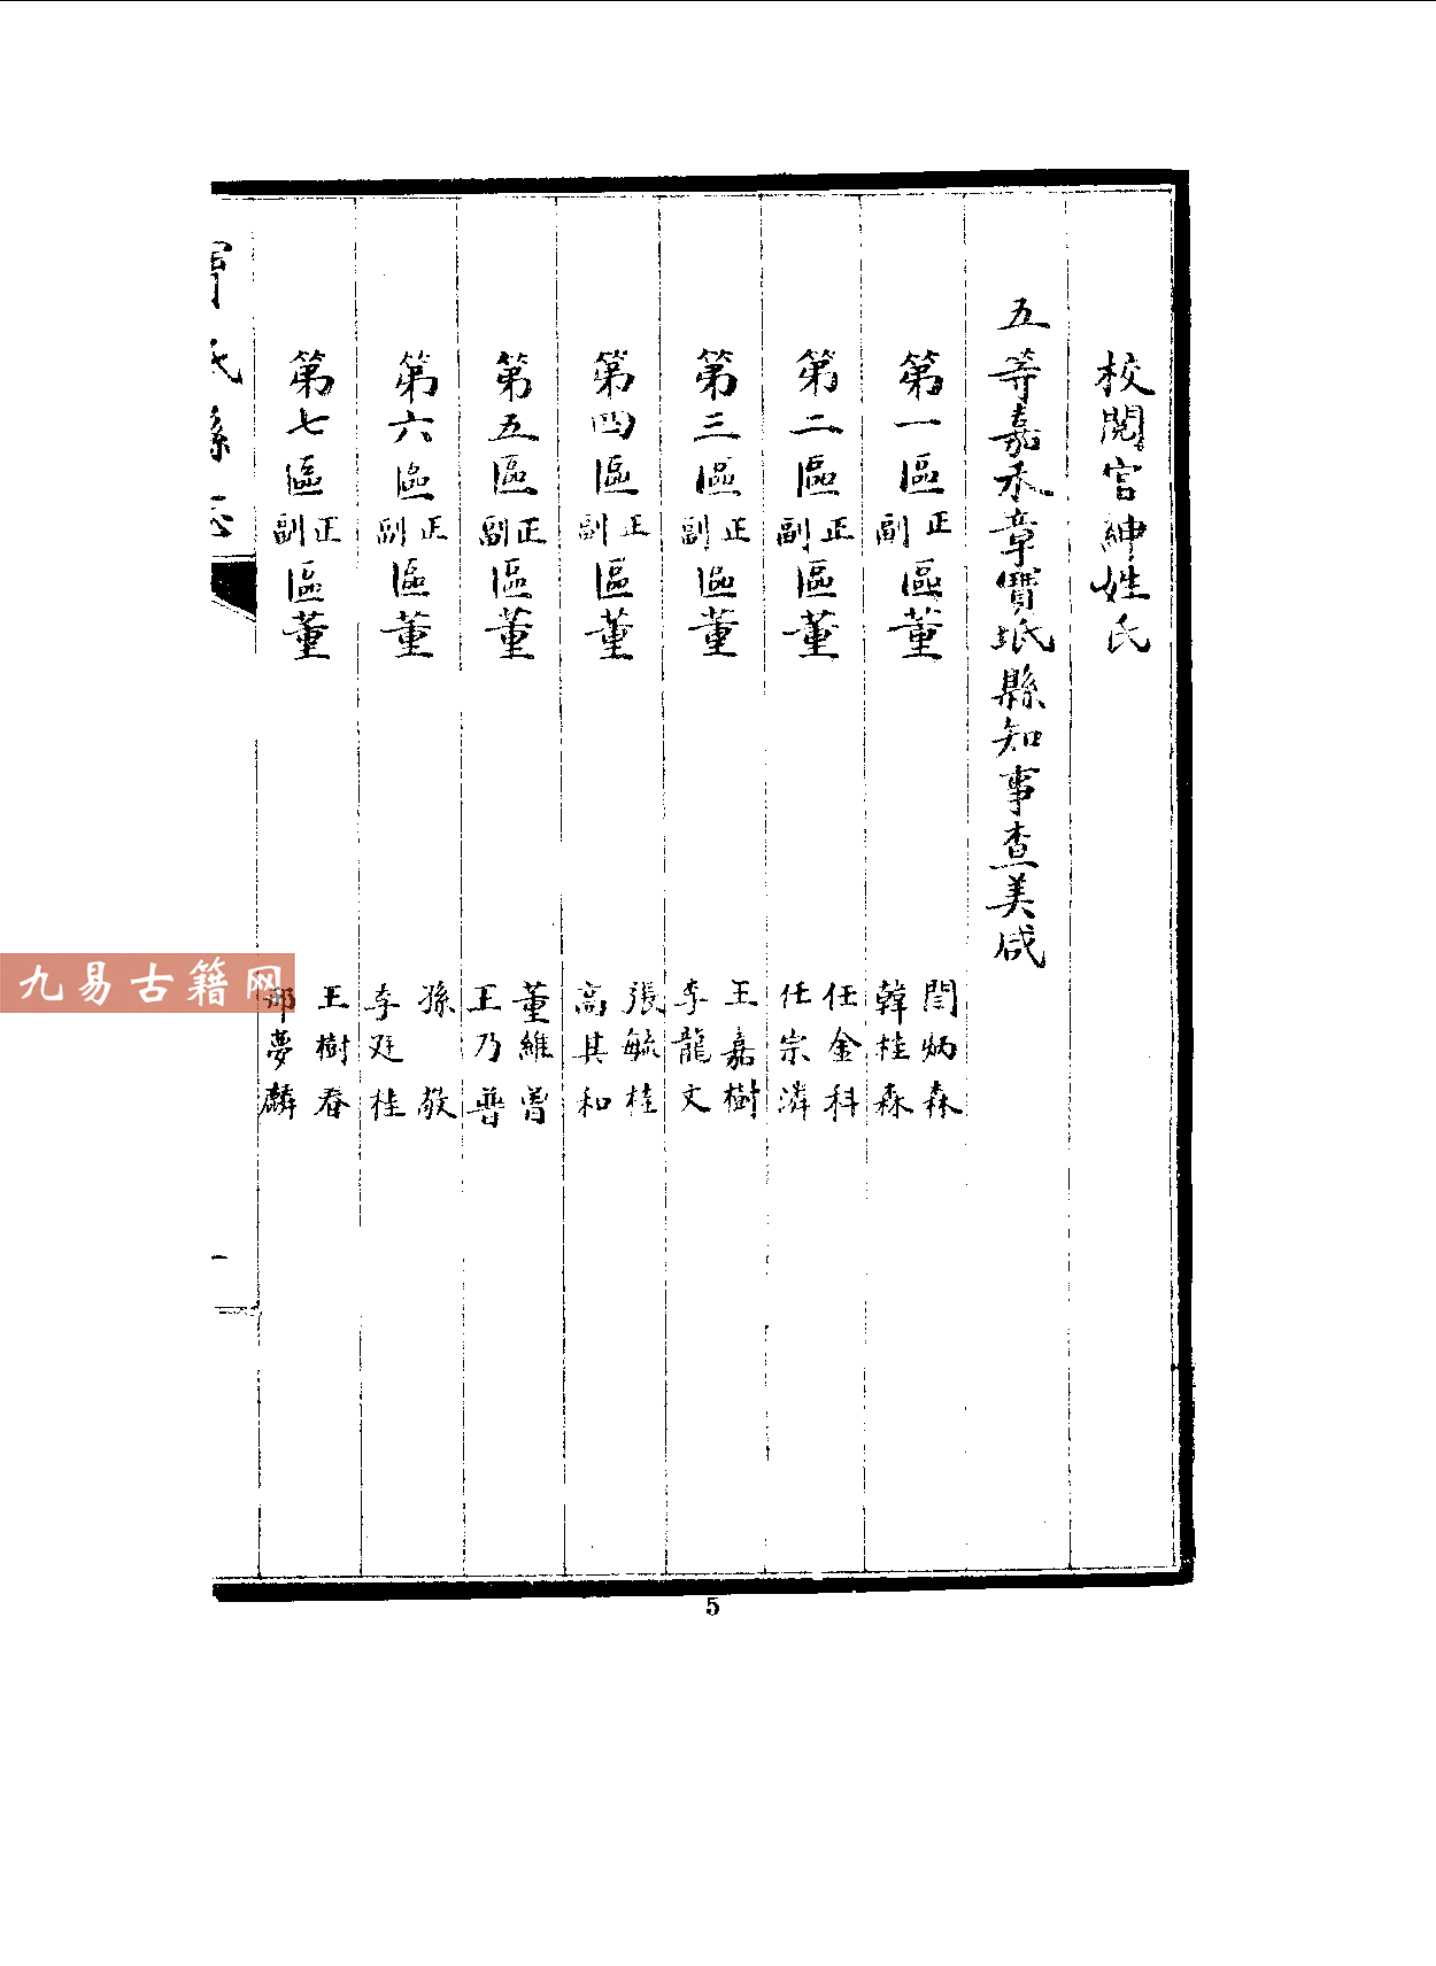 校閱官紳姓氏
五等嘉禾章寶坻縣知事查美成
第一區正副區董 閆炳森 韓桂森
第二區正副區董 任金科 任宗濱
第三區正副區董 王嘉樹 李龍文
第四區正副區董 張毓桂 高其和
第五區正副區董 董維曾 王乃普
第六區正副區董 孫敬 李廷桂
第七區正副區董 王樹春 夢麟
氏縣志
一
5
九易古籍网